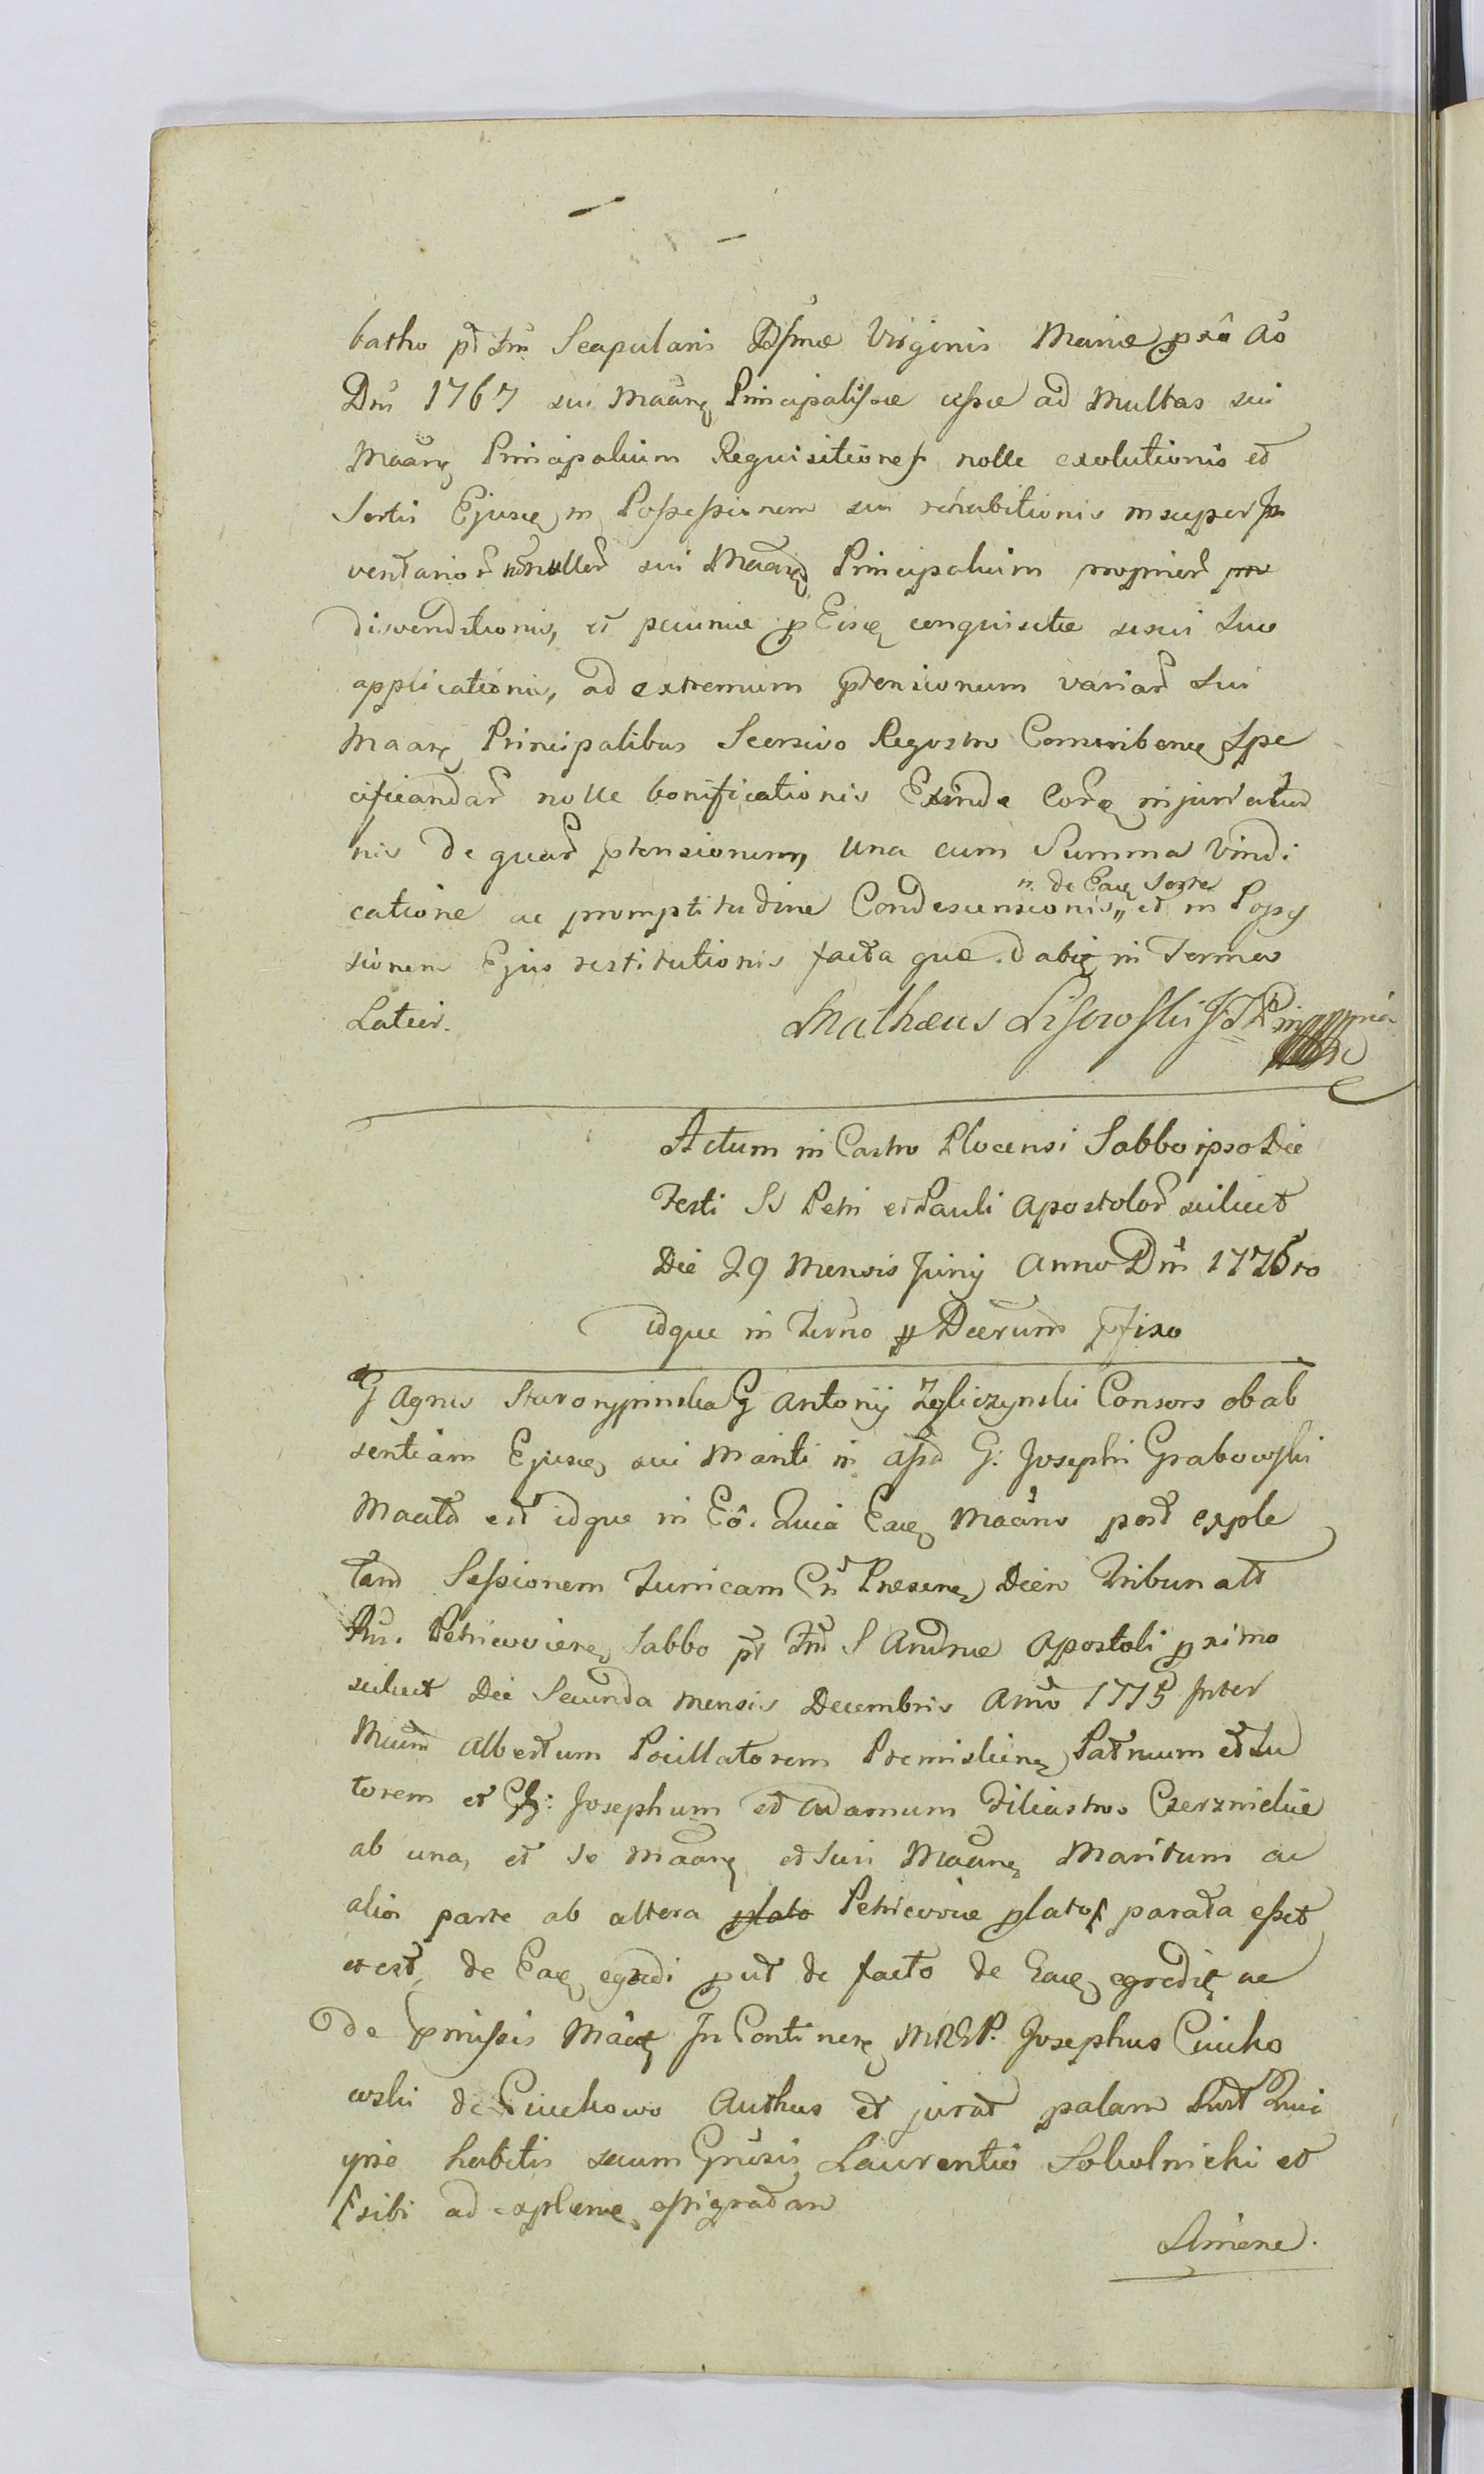 batho pt Fm Scapularis Bssmæ Virginis Mariæ pxo Ao
Dni 1767 sui Maarę Principalissæ ad Multas sui
Maarę Principalium Requisitiones nolle exolutionis et
Sortis Ejuscę in Possessionem sui rehabitionis insuper In
ventarior nonullor sui Maarę Principalium proprior
divenditionis, et pecuniæ p Eiscę conquisitæ usui suo
applicationis, ad extremum ptensionum variar sui
Maarę Principalibus Seorsivo Regestro Comuibenę Spe
cificandar nolle bonificationis Exinde Corę injuriatio
nis de quar ptensionum, una cum Summa Vindi
catione ac promptitudine Condescensionis,, et in Posse
,, de Eacę Sorte
sionem Ejus restitutionis facta quæ dabię in Termo
Latius. Mathæus Lisowski
Actum in Castro Plocensi Sabbo ipso Die
Festi SS Petri et Pauli Apostolor scilicet
Die 29 Mensis Junij Anno Dni 1776to
idque in Terno p Decrum pfixo
G Agnes G Antonij Zgliczynski Consors ob ab
sentiam Ejuscę sui Mariti in assa G: Josephi Grabowski
Maata est idque in Eo. Quia Eacę Maans post exple
tam Sessionem Junicam Cri Præsenę Diein Tribunalt
Rni. Petricoviensę Sabbo pt Fm S Andreæ Apostoli pximo
scilicet Die Secunda Mensis Decembris Anno 1775 Inter
Mcum Albertum Pocillatorem Premislienę Patruum et Tu
torem et GG: Josephum et Adamum Filiastros Czerznickie
ab una, et se Maarę et sui Maarę Maritum ac
alia parte ab altera plato Petricoviæ plato parata esset
et est, de Eacę egredi put de facto de Eacę egredię ac
de pmissis Maaę In Continenę MREP. Josephus Ciecho
wski de Ciechowo Authus et jurat palam Rnt Quia
ipse habitis secum Gnosis Laurentio Sokolnicki et
sibi ad explenę